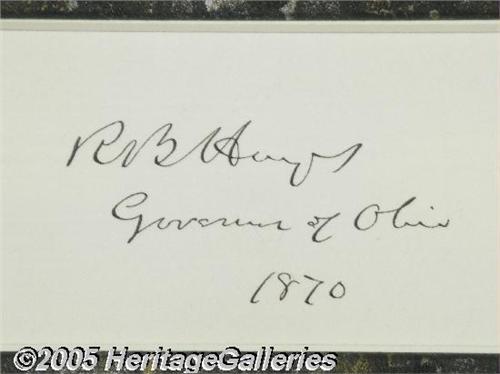 R B Hayes
Governor of Ohio
1870
©2005 HeritageGalleries